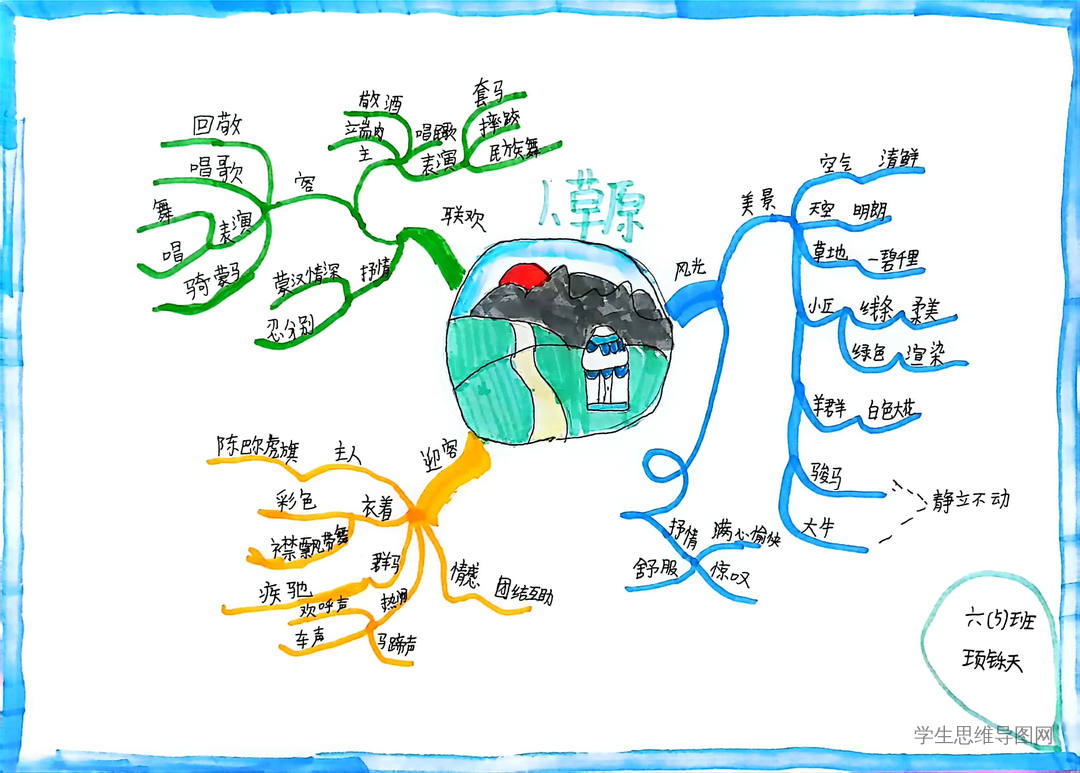 草原
风光
美景
空气 清鲜
天空 明朗
草地 一碧千里
小丘 线条 柔美
绿色 渲染
羊群 白色大花
骏马
大牛
静立不动
抒情 满心愉快
舒服 惊叹
迎客
主人 陈巴尔虎旗
衣着 彩色
襟飘带舞
群马 疾驰
热闹 欢呼声
车声 马蹄声
情感 团结互助
联欢
主 敬酒
端肉
唱民歌
表演 套马
摔跤
民族舞
客 回敬
唱歌
表演 舞
唱
骑蒙马
抒情 蒙汉情深
忍分别
六(5)班
学生思维导图网